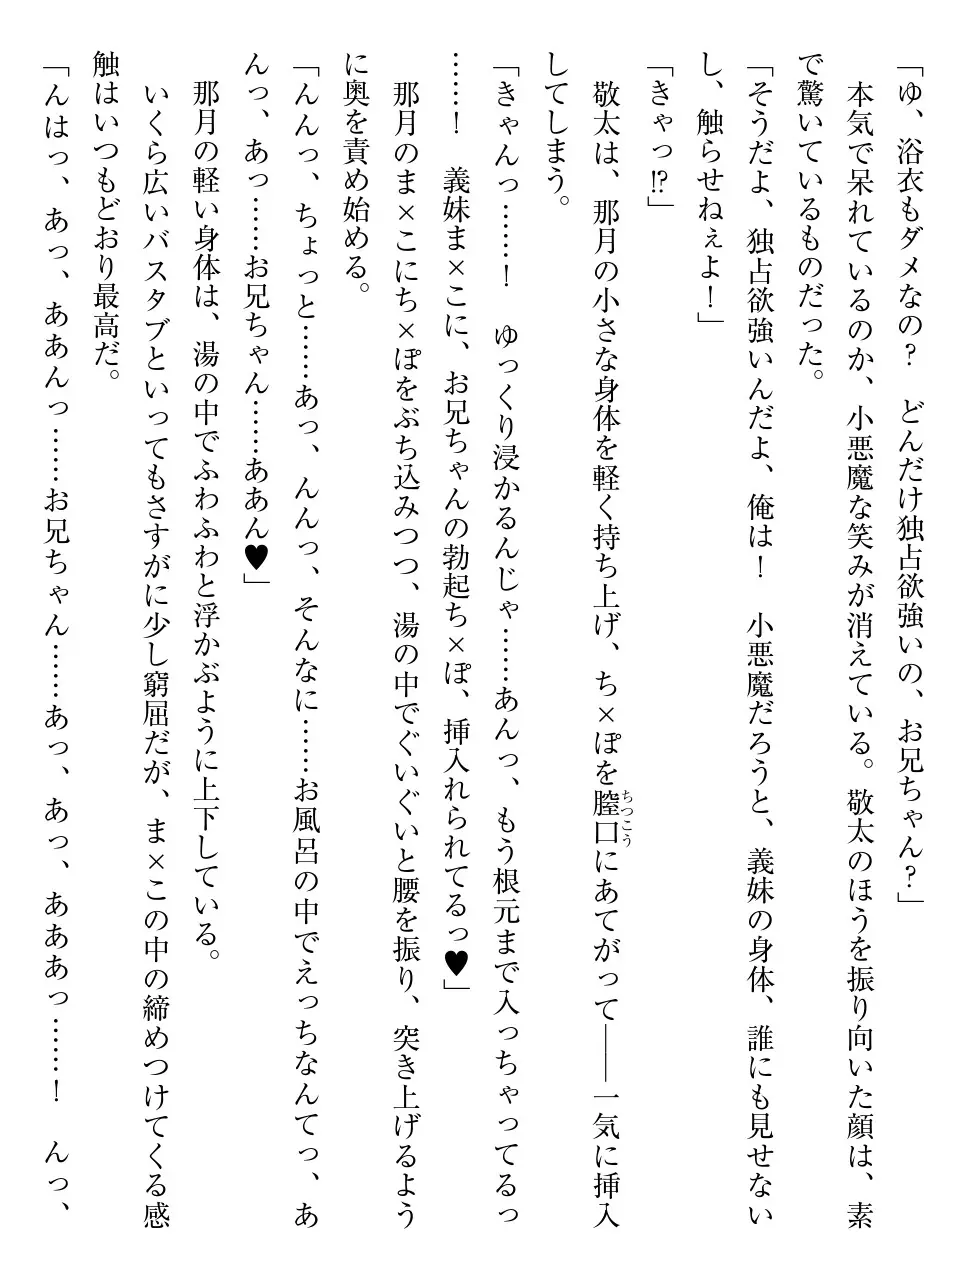 「ゆ、浴衣もダメなの？　どんだけ独占欲強いの、お兄ちゃん？」
本気で呆れているのか、小悪魔な笑みが消えている。敬太のほうを振り向いた顔は、素
で驚いているものだった。
「そうだよ、独占欲強いんだよ、俺は！　小悪魔だろうと、義妹の身体、誰にも見せない
し、触らせねぇよ！」
「きゃっ⁉」
敬太は、那月の小さな身体を軽く持ち上げ、ち×ぽを膣口にあてがって――一気に挿入
ちつこう
してしまう。
「きゃんっ……！　ゆっくり浸かるんじゃ……あんっ、もう根元まで入っちゃってるっ
……！　義妹ま×こに、お兄ちゃんの勃起ち×ぽ、挿入れられてるっ♥」
那月のま×こにち×ぽをぶち込みつつ、湯の中でぐいぐいと腰を振り、突き上げるよう
に奥を責め始める。
「んんっ、ちょっと……あっ、んんっ、そんなに……お風呂の中でえっちなんてっ、あ
んっ、あっ……お兄ちゃん……ああん♥」
那月の軽い身体は、湯の中でふわふわと浮かぶように上下している。
いくら広いバスタブといってもさすがに少し窮屈だが、ま×この中の締めつけてくる感
触はいつもどおり最高だ。
「んはっ、あっ、ああんっ……お兄ちゃん……あっ、あっ、あああっ……！　んっ、